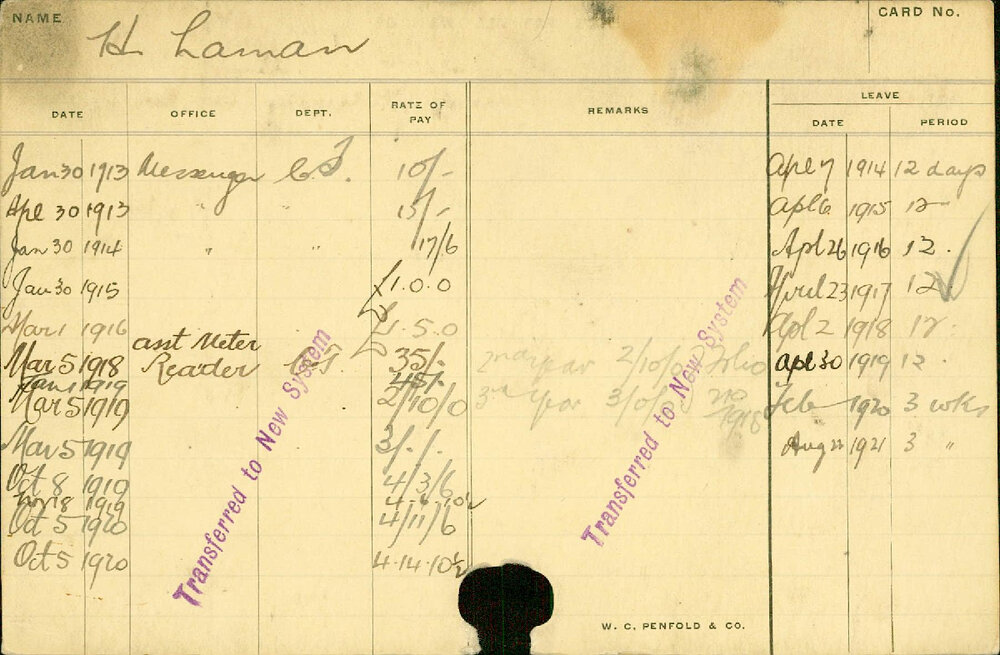 NAME H Laman CARD No.
DATE OFFICE DEPT. RATE OF PAY REMARKS LEAVE
DATE PERIOD
Jan 30 1913 Messenger 10/- Apl 7 1914 12 days
Apl 30 1913 " 15/- Apl 6 1915 12
Jan 30 1914 " " 17/6 Apl 26 1916 12 .
Jan 30 1915 £1.0.0 April 23 1917 12
Mar 1 1916 £1.5.0 Apl 2 1918 12
asst Meter
Mar 5 1918 Reader 35/- 2nd year 2/10/0 Folio Apl 30 1919 12 .
Jan 1 1919 45/-
Mar 5 1919 2/10/0 3rd year 3/0/0 no Feb 1920 3 wks
1918
Mar 5 1919 3/-/- Aug 1921 3 "
Oct 8 1919 4/3/6
Nov 18 1919
Oct 5 1920 4/11/6
Oct 5 1920 4.14.10½
Transferred to New System
Transferred to New System
W. C. PENFOLD & CO.